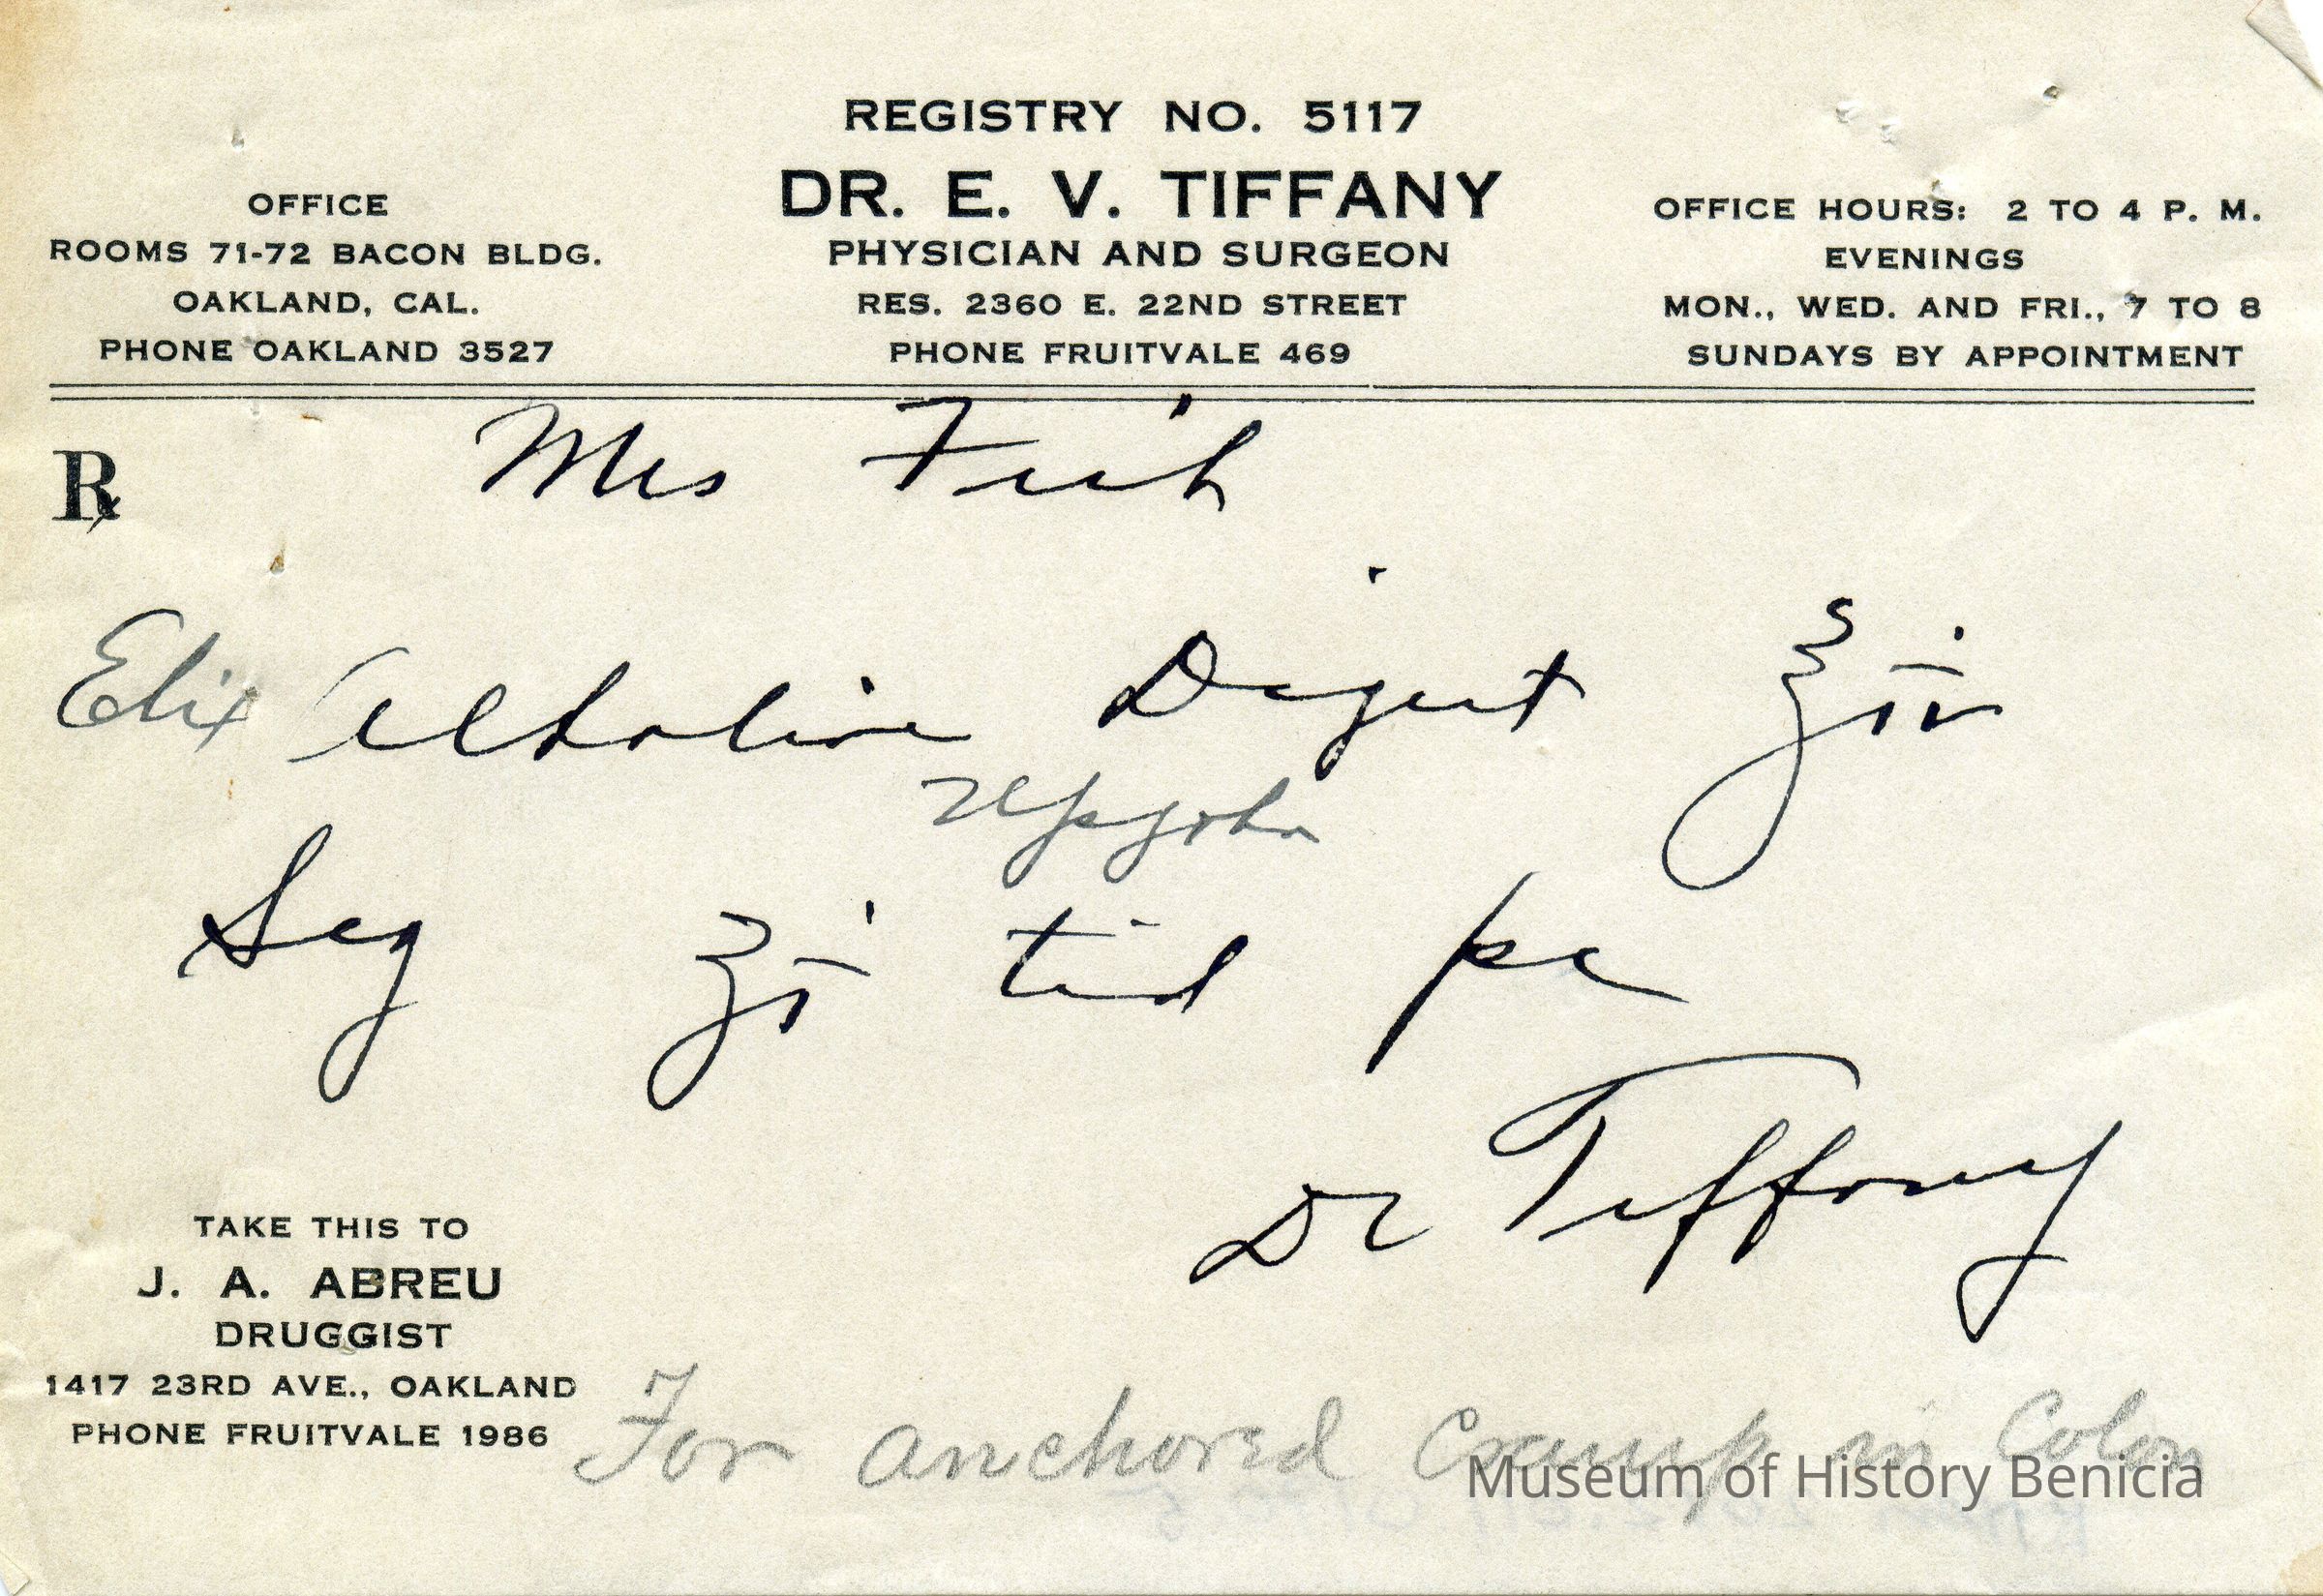 REGISTRY NO. 5117
DR. E. V. TIFFANY
PHYSICIAN AND SURGEON
RES. 2360 E. 22ND STREET
PHONE FRUITVALE 469
OFFICE
ROOMS 71-72 BACON BLDG.
OAKLAND, CAL.
PHONE OAKLAND 3527
OFFICE HOURS: 2 TO 4 P. M.
EVENINGS
MON., WED. AND FRI., 7 TO 8
SUNDAYS BY APPOINTMENT
℞
Mrs
Elix Alkaline Digest ℥iv
Upjohn
Sig ʒi tid pc
Dr Tiffany
TAKE THIS TO
J. A. ABREU
DRUGGIST
1417 23RD AVE., OAKLAND
PHONE FRUITVALE 1986
For anchored Cramp in Colon
Museum of History Benicia